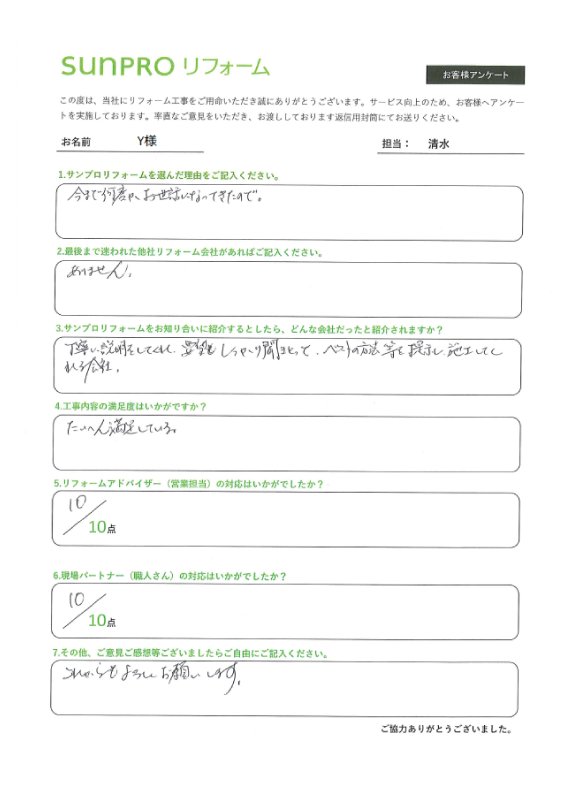 SUNPRO リフォーム
お客様アンケート
この度は、当社にリフォーム工事をご用命いただき誠にありがとうございます。サービス向上のため、お客様へアンケー
トを実施しております。率直なご意見をいただき、お渡ししております返信用封筒にてお送りください。
お名前 Y様
担当： 清水
1.サンプロリフォームを選んだ理由をご記入ください。
今まで何度か、お世話になってきたので。
2.最後まで迷われた他社リフォーム会社があればご記入ください。
ありません。
3.サンプロリフォームをお知り合いに紹介するとしたら、どんな会社だったと紹介されますか？
丁寧に説明をしてくれ、要望をしっかり聞きとって、ベストの方法等を提示し、施工してく
れる会社。
4.工事内容の満足度はいかがですか？
たいへん満足している。
5.リフォームアドバイザー（営業担当）の対応はいかがでしたか？
10
10点
6.現場パートナー（職人さん）の対応はいかがでしたか？
10
10点
7.その他、ご意見ご感想等ございましたらご自由にご記入ください。
これからもよろしくお願いします。
ご協力ありがとうございました。